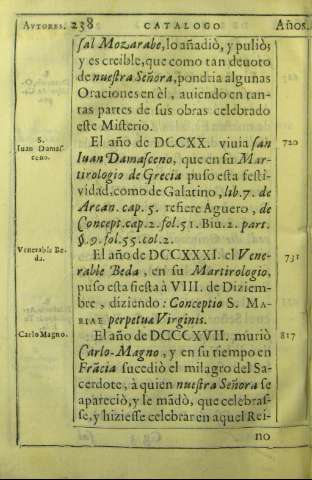 AVTORES. 238 CATALOGO Años.
sal Mozarabe, lo añadiò, y puliò;
y es creible, que como tan deuoto
de nuestra Señora, pondria algunas
Oraciones en èl, auiendo en tan-
tas partes de sus obras celebrado
este Misterio.
S. Iuan Damas-
ceno.
El año de DCCXX. viuia san 720
Iuan Damasceno, que en su Mar-
tirologio de Grecia puso esta festi-
vidad, como de Galatino, lib. 7. de
Arcan. cap. 5. refiere Aguero, de
Concept. cap. 2. fol. 51. Biu. 2. part.
§. 9. fol. 55. col. 2.
Venerable Be-
da.
El año de DCCXXXI. el Vene- 731
rable Beda, en su Martirologio,
puso esta fiesta à VIII. de Diziem-
bre, diziendo: Conceptio S. MA-
RIAE perpetuæ Virginis.
Carlo Magno. El año de DCCCXVII. muriò 817
Carlo-Magno, y en su tiempo en
Frãcia sucediò el milagro del Sa-
cerdote, à quien nuestra Señora se
apareciò, y le mãdò, que celebras-
se, y hiziesse celebrar en aquel Rei-
no